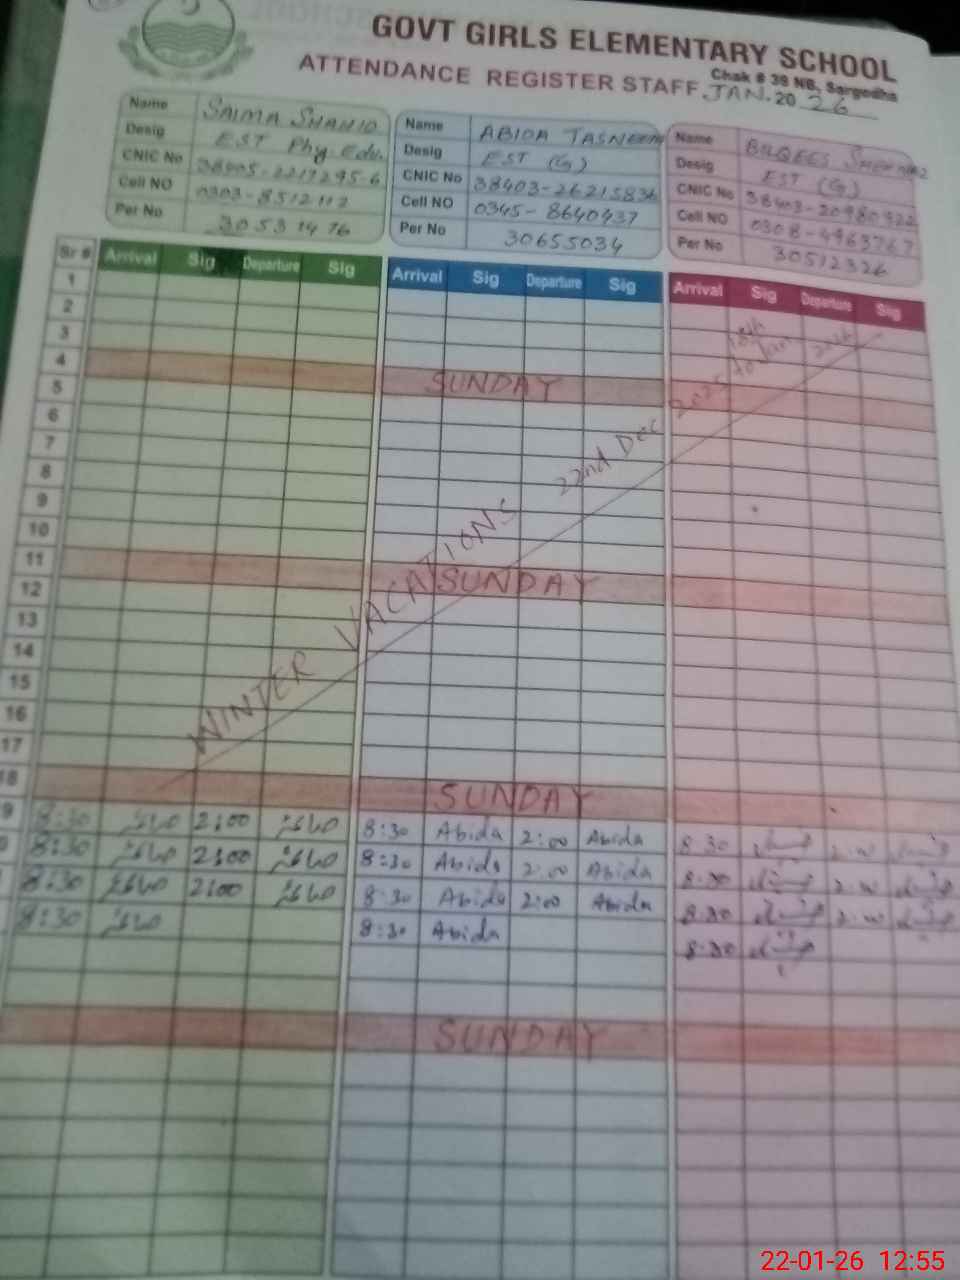 GOVT GIRLS ELEMENTARY SCHOOL
Chak # 39 NB, Sargodha
ATTENDANCE REGISTER STAFF JAN. 2026
Name SAIMA SHAHID
Desig EST Phy. Edu.
CNIC No 38405-2217295-6
Cell NO 0303-8512112
Per No
Name ABIDA TASNEEM
Desig EST (G)
CNIC No 38403-26215836
Cell NO 0345-8640437
Per No 30655034
Name BILQEES
Desig EST (G)
CNIC No 38403-20980922
Cell NO 0308-4963767
Per No 30512326
Sr # Arrival Sig Departure Sig Arrival Sig Departure Sig Arrival Sig Departure Sig
1
2
3
4 SUNDAY
5
6
7
8
9
10
11 SUNDAY
12
13
14
15
16
17
18 SUNDAY
WINTER VACATIONS 22nd Dec 2025 to Jan
9 8:30 صائمہ 2:00 صائمہ 8:30 Abida 2:00 Abida 8:30 2:00
8:30 صائمہ 2:00 صائمہ 8:30 Abida 2:00 Abida 8:30 2:00
8:30 صائمہ 2:00 صائمہ 8:30 Abida 2:00 Abida 8:30 2:00
8:30 صائمہ 8:30 Abida 8:30
SUNDAY
22-01-26 12:55